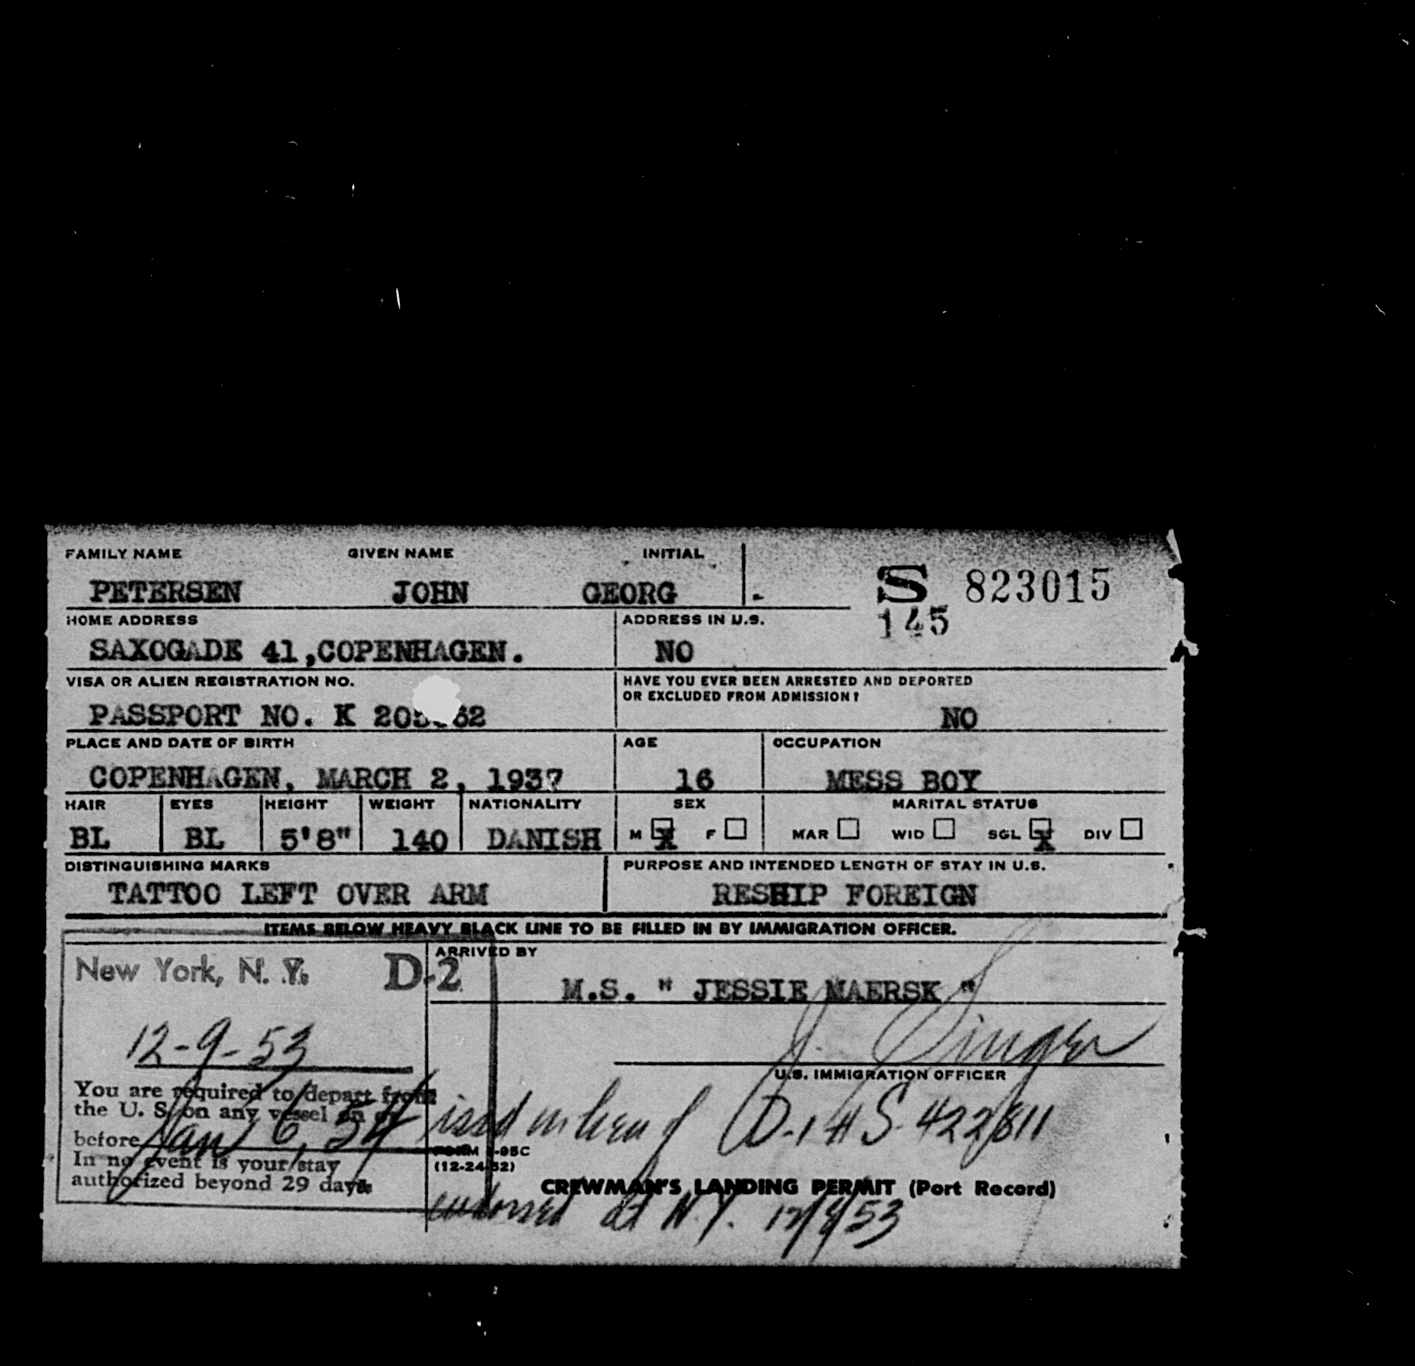 FAMILY NAME GIVEN NAME INITIAL
PETERSEN JOHN GEORG - S 823015
145
HOME ADDRESS ADDRESS IN U.S.
SAXOGADE 41,COPENHAGEN. NO
VISA OR ALIEN REGISTRATION NO. HAVE YOU EVER BEEN ARRESTED AND DEPORTED
OR EXCLUDED FROM ADMISSION?
PASSPORT NO. K NO
PLACE AND DATE OF BIRTH AGE OCCUPATION
COPENHAGEN, MARCH 2, 1937 16 MESS BOY
HAIR EYES HEIGHT WEIGHT NATIONALITY SEX MARITAL STATUS
BL BL 5'8" 140 DANISH M X F MAR WID SGL X DIV
DISTINGUISHING MARKS PURPOSE AND INTENDED LENGTH OF STAY IN U.S.
TATTOO LEFT OVER ARM RESHIP FOREIGN
ITEMS BELOW HEAVY BLACK LINE TO BE FILLED IN BY IMMIGRATION OFFICER.
New York, N. Y. D-2 ARRIVED BY
M.S. " JESSIE MAERSK "
12-9-53 J. Singer
U.S. IMMIGRATION OFFICER
You are required to depart from
the U. S. on any vessel on or
before Jan 6, 54 issd in lieu of D-1 # S-422811
In no event is your stay
authorized beyond 29 days.
FORM I-95C
(12-24-52)
CREWMAN'S LANDING PERMIT (Port Record)
endorsed at N.Y. 12/9/53